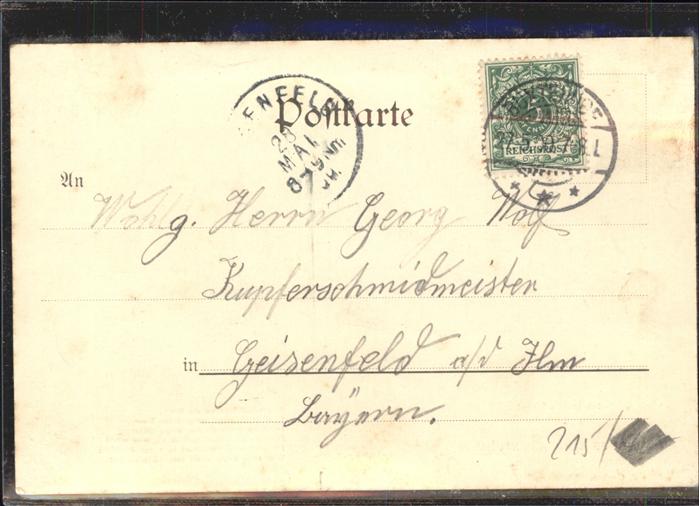 Postkarte
ENFELD
28
MAI
8-9 Nm
5
REICHSPOST
An
Wohlg. Herrn Georg Wolf
Kupferschmidmeister
in Geisenfeld a/d Ilm
Bayern.
215/